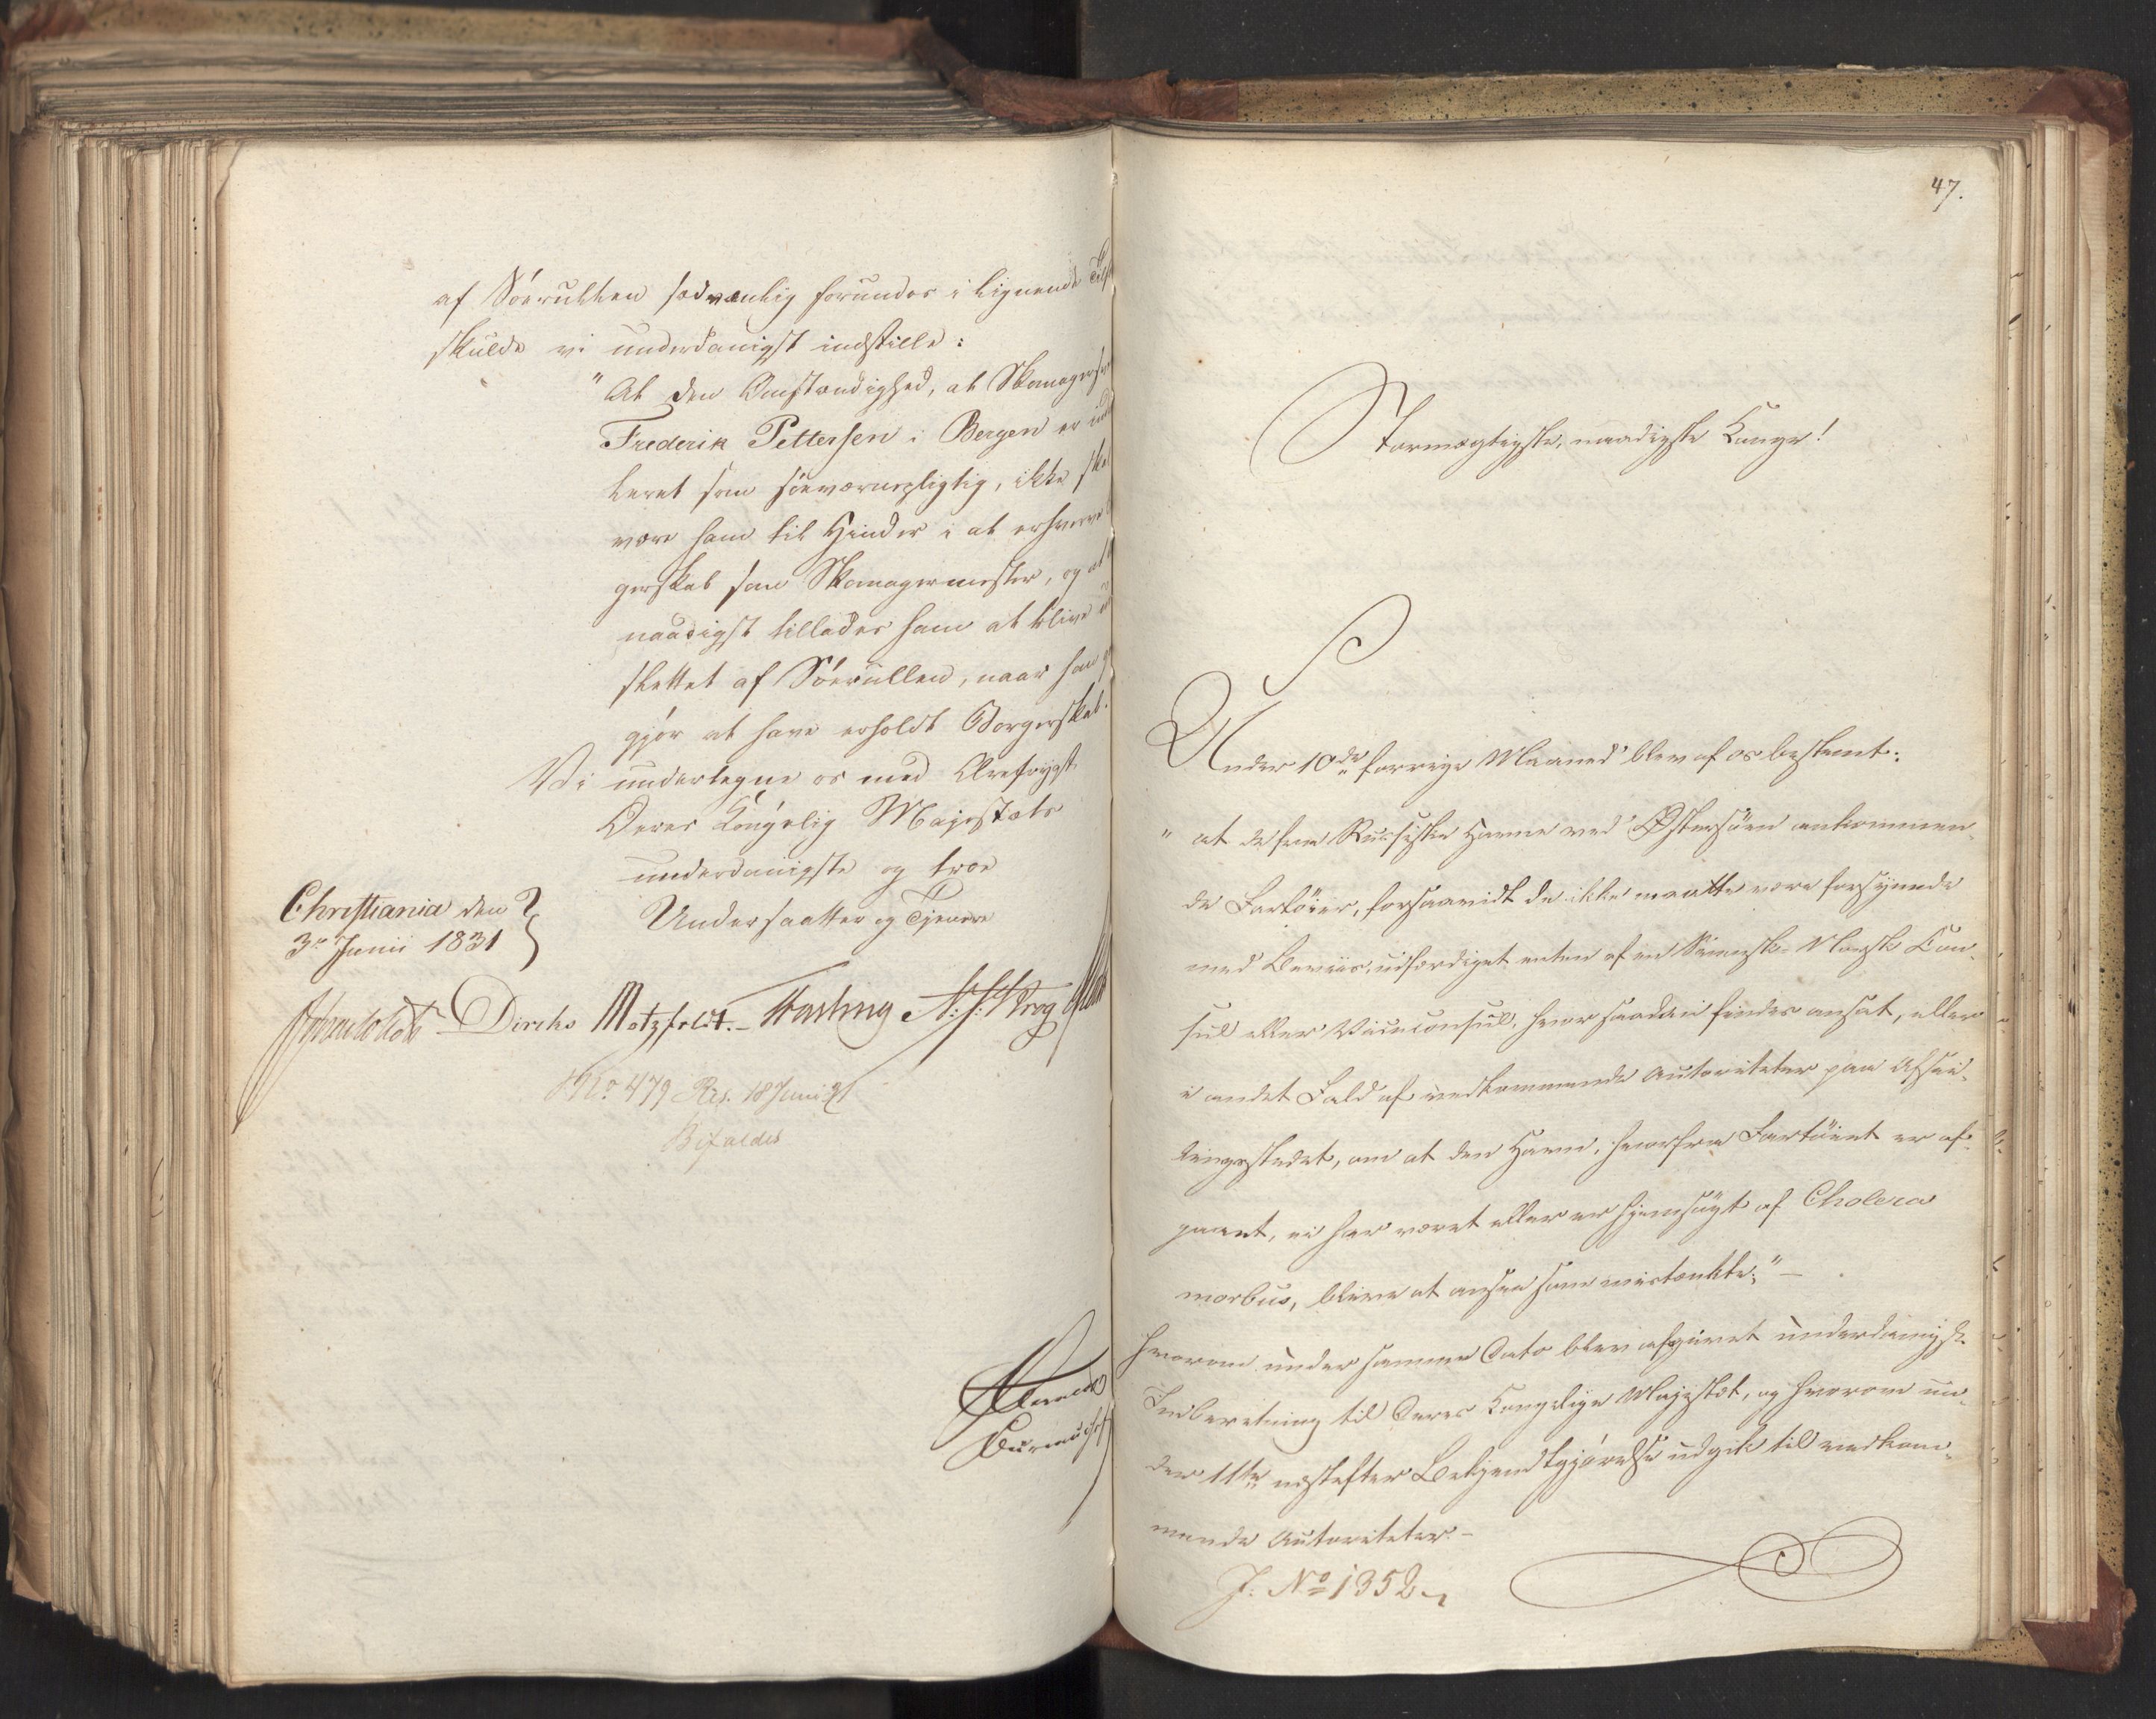 af Söerullen sædvanlig forundes i lignende
skulde vi underdanigst indstille:
"At den Omstændighed, at Skomagers
Frederik Pettersen i Bergen er
leret som söeværnepligtig, ikke
være ham til Hinder i at erhverve
gerskab som Skomagermester, og at
naadigst tillades ham at blive
slettet af Söerullen, naar han
gjør at have erholdt Borgerskab.
Vi undertegne os med Ærefrygt
Deres Kongelig Majestæts
underdanigste og troe
Undersaatter og Tjenere
Christiania den
3die Junii 1831
Diriks Motzfeldt. Fasting
No 479 Res. 18 Juni 31
Bifaldes
47.
Stormægtigste, naadigste Konge!
Under 10de forrige Maaned blev af os bestemt:
" at de fra Russiske Havne ved Østersöen ankommen-
de Fartöier, forsaavidt de ikke maatte være forsynede
med Beviis, udfærdiget enten af en Svensk-Norsk Con-
sul eller Viceconsul, hvor saadan findes ansat, eller
i andet Fald af vedkommende Autoriteter paa Afsei-
lingsstedet, om at den Havn, hvorfra Fartöiet er af-
gaaet, ei har været eller er hjemsögt af Cholera
morbus, blive at ansee som mistænkte;" —
hvorom under samme Dato blev afgivet underdanigst
Indberetning til Deres Kongelige Majestæt, og hvorom un-
der 11te næstefter Bekjendtgjörelse udgik til vedkom-
mende Autoriteter. —
J. No 1352